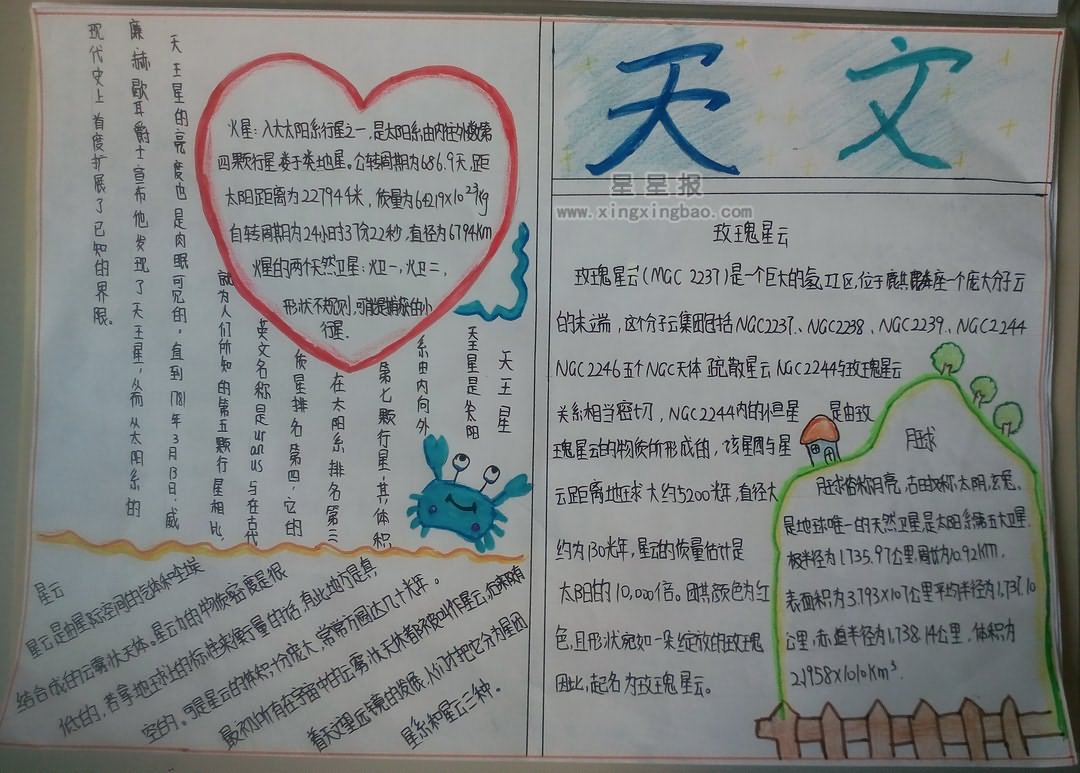 天文
星星报
www.xingxingbao.com
火星：八大太阳系行星之一，是太阳系由内往外数第
四颗行星 娄于类土地星。公转周期为686.9天，距
太阳距离为227944米，质量为6421.9×10²³kg
自转周期为24小时37分22秒，直径为6794km
火星的两个天然卫星：火卫一，火卫二，
形状不规则，可能是捕获的小
行星。
天王星
天王星是太阳
系由内向外
第七颗行星，其体积
在太阳系排名第三
质星排名第四，它的
英文名称是uranus与在古代
就为人们所知的第五颗行星相比，
天王星的亮度也是肉眼可见的。直到1781年3月13日，威
廉·赫歇耳爵士宣布他发现了天王星，从而从太阳系的
现代史上首度扩展了已知的界限。
星云
星云是由星际空间的气体和尘埃
结合成的云雾状天体。星云力的物质密度是很
低的，若拿地球上的标准来衡量的话，有此地方是真
空的。可是星云的体积十分庞大，常常方圆达几十光年。
最初所有在宇宙中的云雾状天体都不被叫作星云，后来随有
着天望远镜的发展，人们才把它分为星团
星系和星云三种。
玫瑰星云
玫瑰星云（MGC 2237）是一个巨大的氢工工区，位于麒其麟座一个庞大分子云
的末端，这个分子云集团包括NGC2237、NGC2238、NGC2239、NGC2244
NGC2246五个NGC天体 疏散星云NGC2244与玫瑰星云
关系相当密切，NGC2244内的恒星 是由玫
瑰星云的物质所形成的，该星团与星
云距离地球大约5200光年，直径大
约为130光年，星云的质量估计是
太阳的10,000倍。团其颜色为红
色，且形状宛如一朵绽放的玫瑰
因此，起名为玫瑰星云。
月球
月球俗称月亮，古时又称太阴，玄兔，
是地球唯一的天然卫星是太阳系第五大卫星
极半径为1735.97公里，周世为10.92km，
表面积为3.793×107公里平均半径为1,737.10
公里，赤道半径为1,738.14公里，体积为
2.1958×1010km³